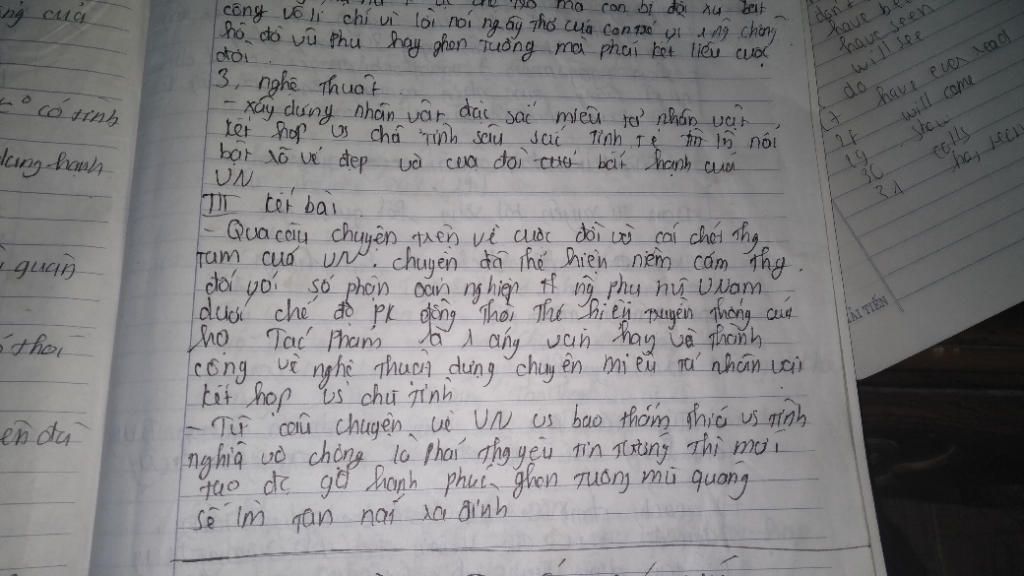 công vô lí chỉ vì lời nói ngây thơ của con trẻ vs 1 ng chồng
hồ đồ vũ phu hay ghen tuông mà phải kết liễu cuộc
đời
3, nghệ thuật
- xây dựng nhân vật đặc sắc miêu tả nhân vật
kết hợp vs chất tính sâu sắc tinh tế nói
bật rõ vẻ đẹp và của đời bất hạnh của
VN
III kết bài
- Qua câu chuyện trên về cuộc đời và cái chết thg
tam của VN. chuyện đã thể hiện niềm cảm thg.
đối với số phận oan nghiệt ng phụ nữ VNam
dưới chế độ PK đồng thời thể hiện truyền thống của
họ Tác phẩm là 1 áng văn hay và thành
công về nghệ thuật dựng chuyện miêu tả nhân vật
kết hợp vs chữ tình
- Từ câu chuyện về VN vs bao thấm thía vs tình
nghĩa vợ chồng là phải thg yêu tin tưởng thì mới
tạo đc gđ hạnh phúc, ghen tuông mù quáng
sẽ lm tan nát gia đình
có tình
dung hạnh
quan
thời
don't
have been
have seen
will see
do
have ever read
27 will come
29 stew
30 calls
31 ha,
HẢI TIẾN